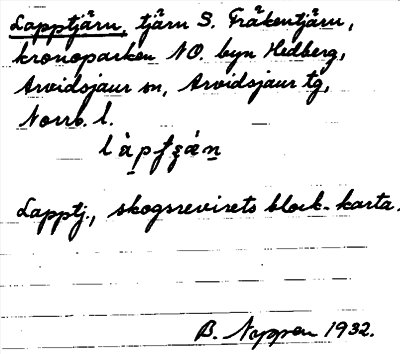 Lapptjärn, tjärn S. Fräkentjärn,
kronoparken NO. byn Hedberg,
Arvidsjaur sn, Arvidsjaur tg,
Norrb. l.
Lapptj., skogsrevirets block-karta.
B. Noppen 1932.